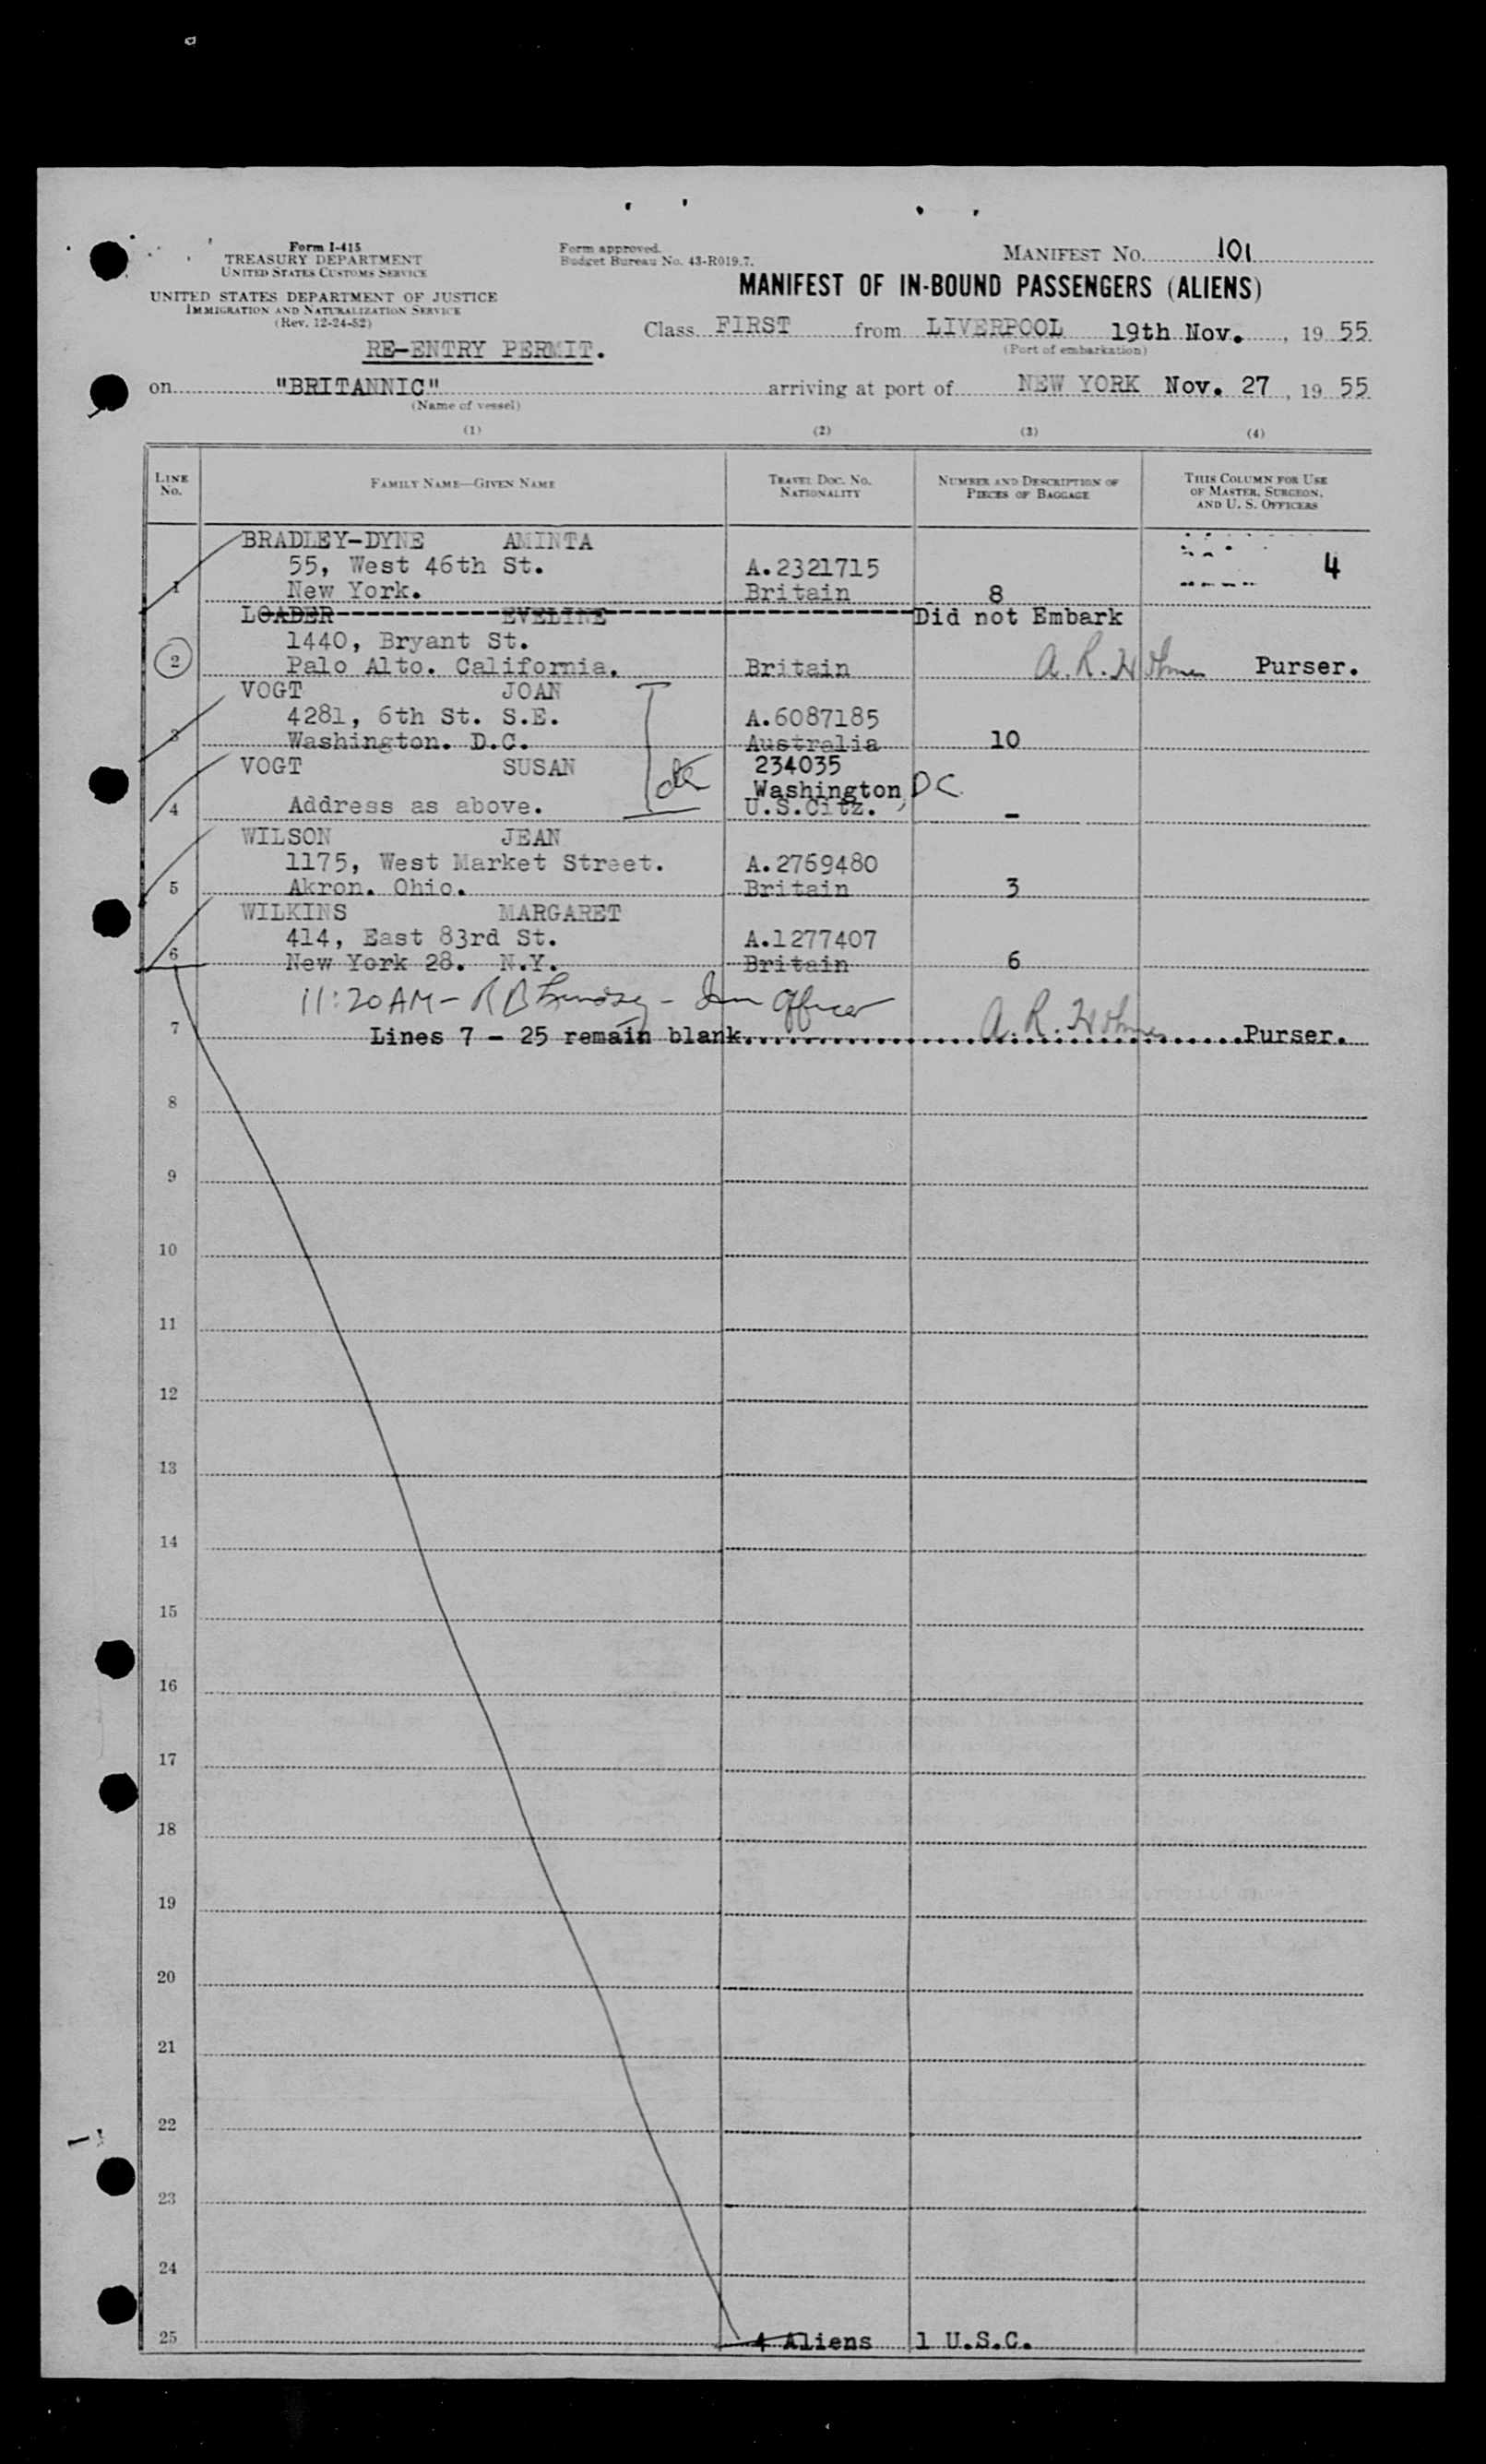 Form I-415
TREASURY DEPARTMENT
UNITED STATES CUSTOMS SERVICE
UNITED STATES DEPARTMENT OF JUSTICE
IMMIGRATION AND NATURALIZATION SERVICE
(Rev. 12-24-52)
Form approved.
Budget Bureau No. 43-R019.7.
MANIFEST NO. 101
MANIFEST OF IN-BOUND PASSENGERS (ALIENS)
Class FIRST from LIVERPOOL 19th Nov., 19 55
(Port of embarkation)
RE-ENTRY PERMIT.
on "BRITANNIC" arriving at port of NEW YORK Nov. 27, 19 55
(Name of vessel)
(1) (2) (3) (4)
LINE No.
FAMILY NAME—GIVEN NAME
TRAVEL DOC. NO. NATIONALITY
NUMBER AND DESCRIPTION OF PIECES OF BAGGAGE
THIS COLUMN FOR USE OF MASTER, SURGEON, AND U. S. OFFICERS
BRADLEY-DYNE AMINTA
55, West 46th St. A.2321715 4
1 New York. Britain 8
LOADER EVELINE Did not Embark
1440, Bryant St.
2 Palo Alto. California. Britain A. R. Purser.
VOGT JOAN
4281, 6th St. S.E. A.6087185
3 Washington. D.C. Australia 10
VOGT SUSAN 234035
Washington, DC
4 Address as above. U.S.Citz. -
WILSON JEAN
1175, West Market Street. A.2769480
5 Akron. Ohio. Britain 3
WILKINS MARGARET
414, East 83rd St. A.1277407
6 New York 28. N.Y. Britain 6
11:20 AM - R B - Imm Officer
7 Lines 7 - 25 remain blank. A. R. Purser.
8
9
10
11
12
13
14
15
16
17
18
19
20
21
22
23
24
25 4 Aliens 1 U.S.C.